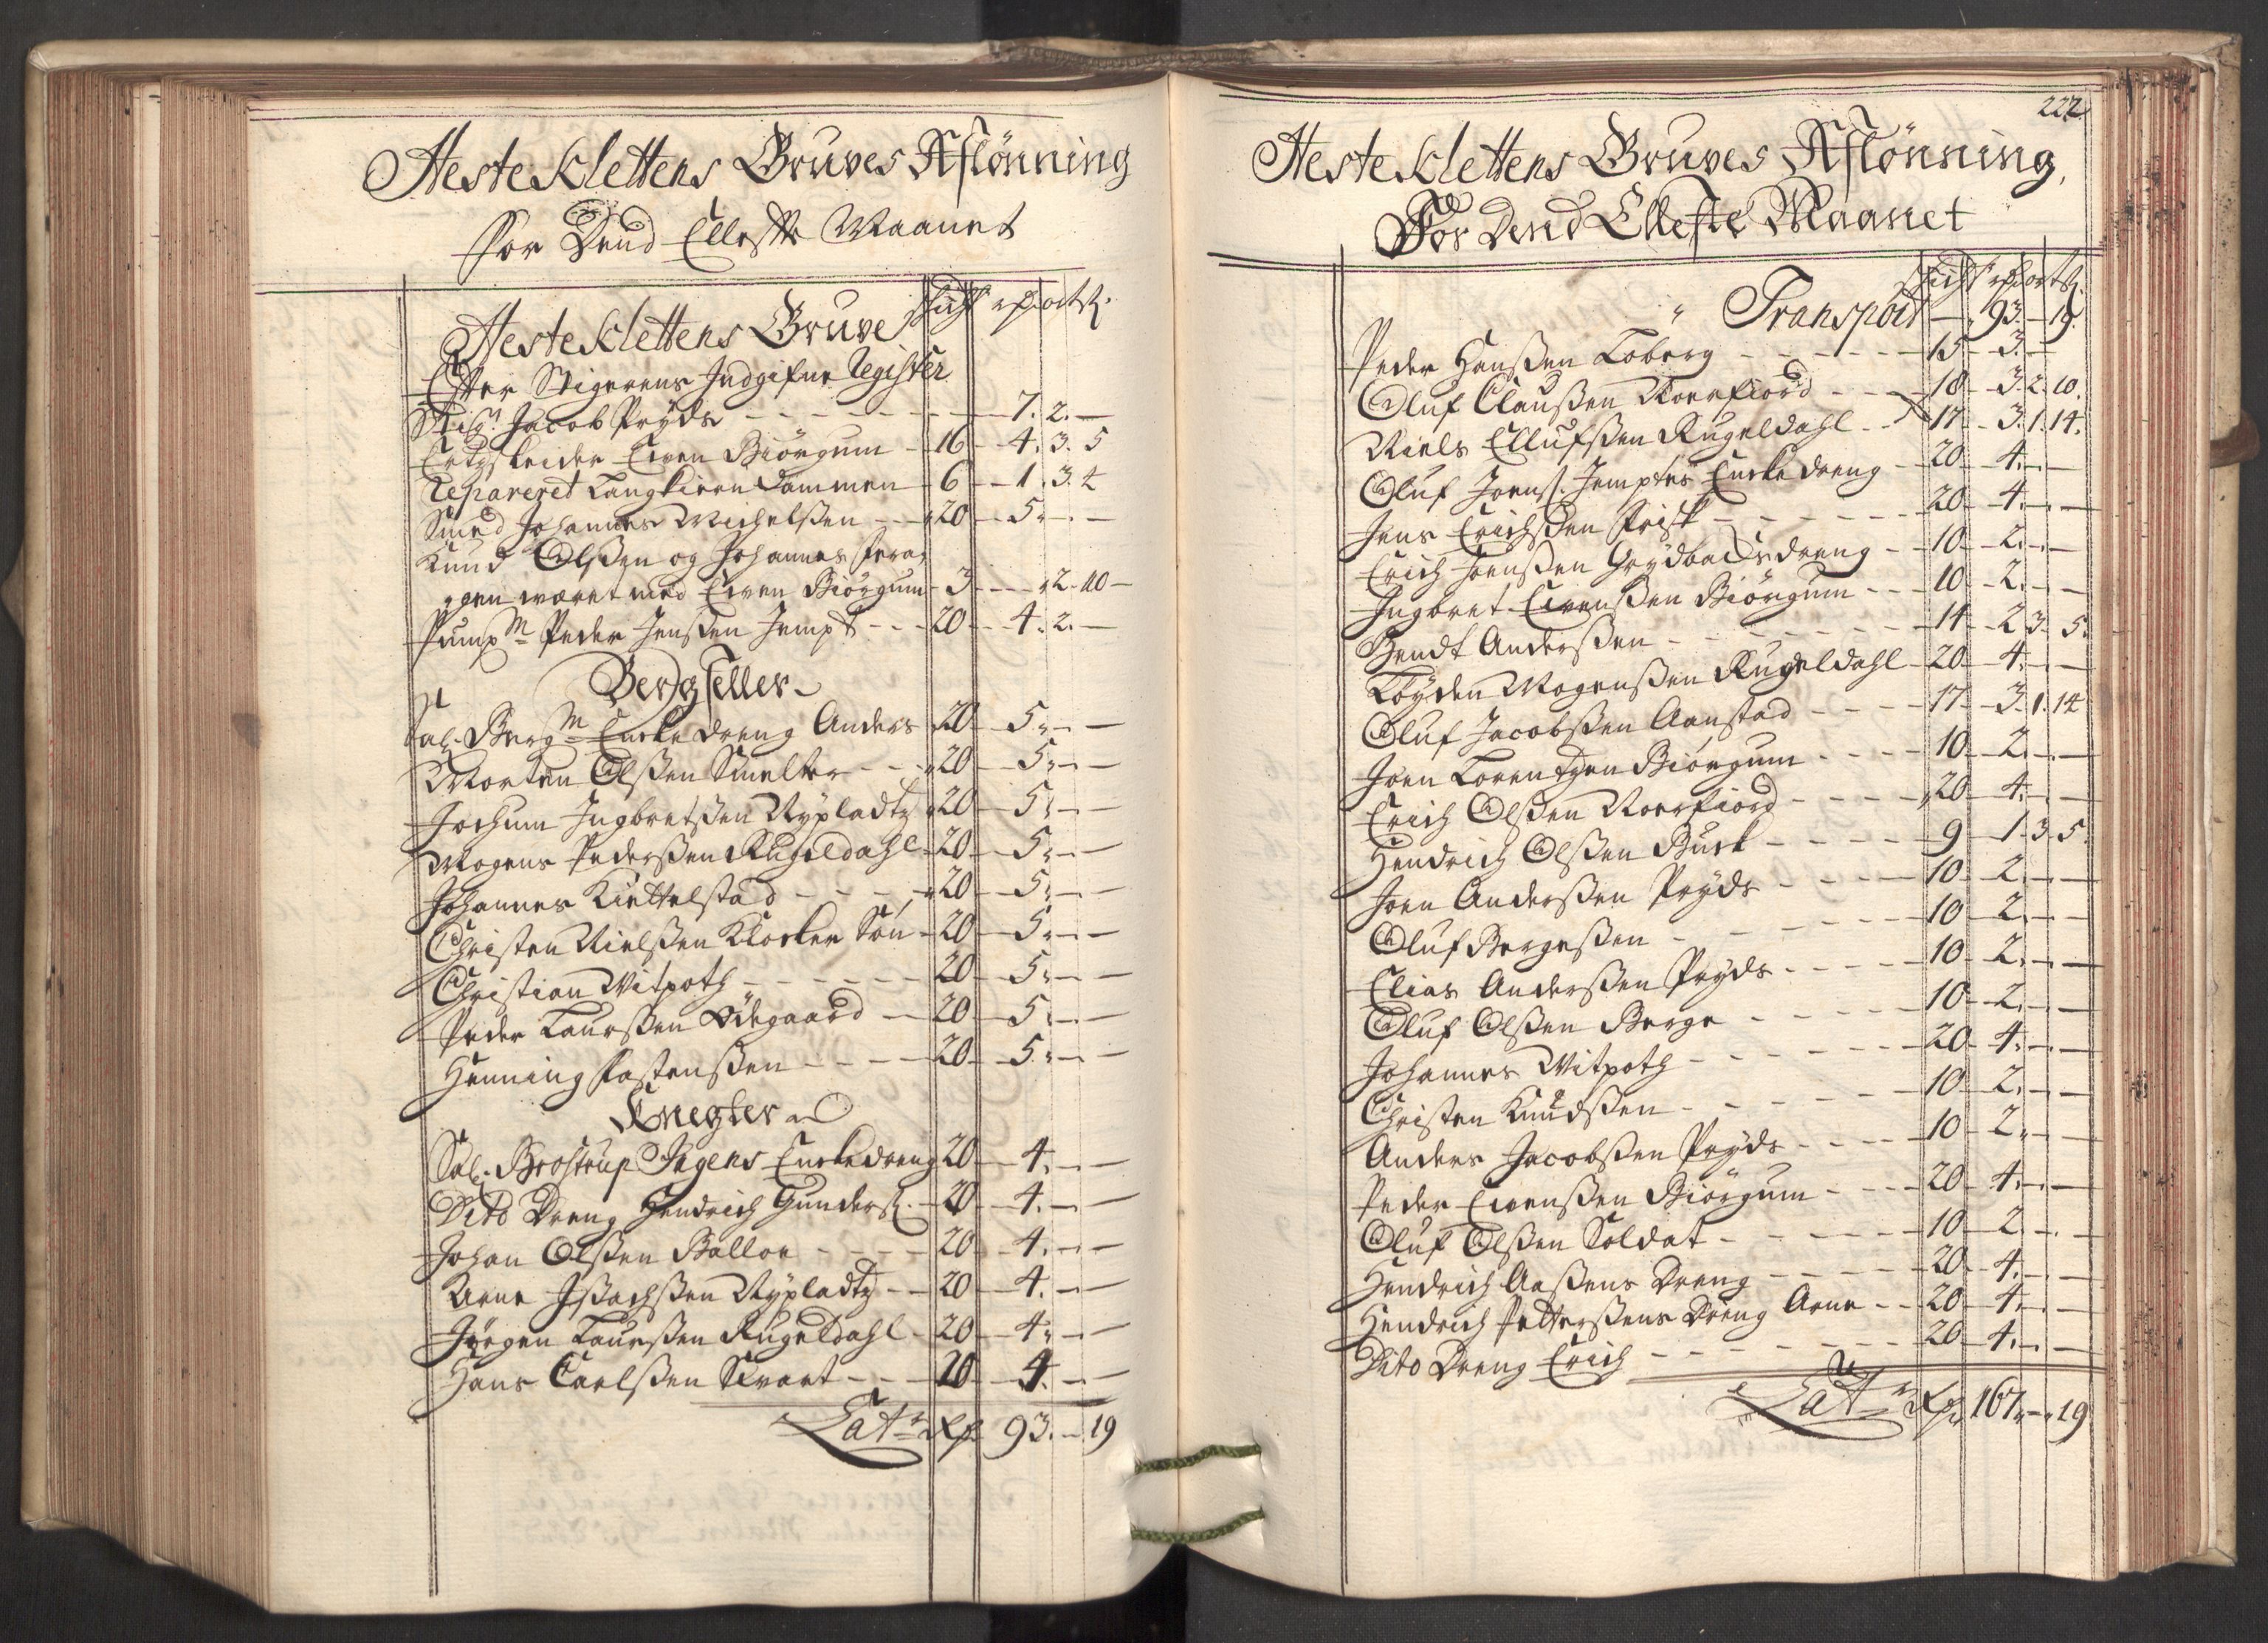 HesteKlettens Gruves Aflønning
for Dend Elleffte Maanet
schicht rp ort s.
HesteKlettens Gruve
Efter Stigerens Indgifne Register
Stig: Jacob Pryds - - - 7. 2. -
Ertzskeider Even Biörgum - 16 - 4. 3. 5
Repareret Langtiern dammen - 6 - 1. 3. 4
Smed Johannes Michelssen - - 20 - 5. - -
Knud Olssen og Johannes Fera-
gen wæret med Even Biörgum - 3 - - 2. 10 -
Pump M Peder Jenssen Jempt - - 20 - 4. 2. -
Bergseller
Sal. Berg M Encke dreng Anders 20 - 5. - -
Morten Olssen Smelter - - 20 - 5. - -
Jochum Ingbretssen Nypladtz 20 - 5. - -
Mogens Pederssen Rugeldahl - 20 - 5. - -
Johannes Kiettelstad - - 20 - 5. - -
Christen Nielssen Klocker Søn - 20 - 5. - -
Christian Witpoth - - - 20 - 5. - -
Peder Laurssen Ödegaard - 20 - 5. - -
Henning Fastenssen - - - 20 - 5. - -
Knegter
Sal. Brostrup Jsgens Enckedreng 20 - 4. - -
Dito Dreng Hendrich Gunders. - 20 - 4. - -
Johan Olssen Balloe - - - 20 - 4. - -
Arne Issachssen Nypladtz - - 20 - 4. - -
Jörgen Laurssen Rugeldahl - 20 - 4. - -
Hans Carlssen Svart - - - 20 - 4. - -
Lat. Rp 93. - 19
222
HesteKlettens Gruves Aflønning,
For Dend Elleffte Maanet
schicht rp ort s.
Transport - 93. - 19.
Peder Hanssen Loberg - - - 15 - 3. - -
Oluf Claussen Norrfiord - - - 18 - 3. 2. 10.
Niels Ellufssen Rugeldahl - - 17 - 3. 1. 14.
Oluf Joens. Jemptes Encke dreng - 20 - 4. - -
Jens Erichssen Frisk - - - 20 - 4. - -
Erich Joenssen Grydbachs dreng - - 10 - 2. - -
Ingbret Evenssen Biörgum - - - 10 - 2. - -
Bendt Anderssen - - - 14 - 2. 3. 5.
Töyden Mogenssen Rugeldahl - 20 - 4. - -
Oluf Jacobssen Aanstad - - - 17 - 3. 1. 14
Joen Lorentzen Biörgum - - - 10 - 2. - -
Erich Olssen Norrfiord - - - 20 - 4. - -
Hendrich Olssen Busk - - - 9 - 1. 3. 5.
Joen Anderssen Pryds - - - 10 - 2. - -
Oluf Bergessen - - - 10 - 2. - -
Elias Anderssen Pryds - - - 10 - 2. - -
Oluf Olssen Berge - - - 10 - 2. - -
Johannes Witpoth - - - 20 - 4. - -
Christen Knudssen - - - 10 - 2. - -
Anders Jacobssen Pryds - - - 10 - 2. - -
Peder Evenssen Biörgum - - - 20 - 4. - -
Oluf Olssen Soldat - - - 10 - 2. - -
Hendrich Aassens Dreng - - - 20 - 4. - -
Hendrich Petterssens Dreng Arne - - 20 - 4. - -
Dito Dreng Erich - - - 20 - 4. - -
Lat. Rp 167. - 19